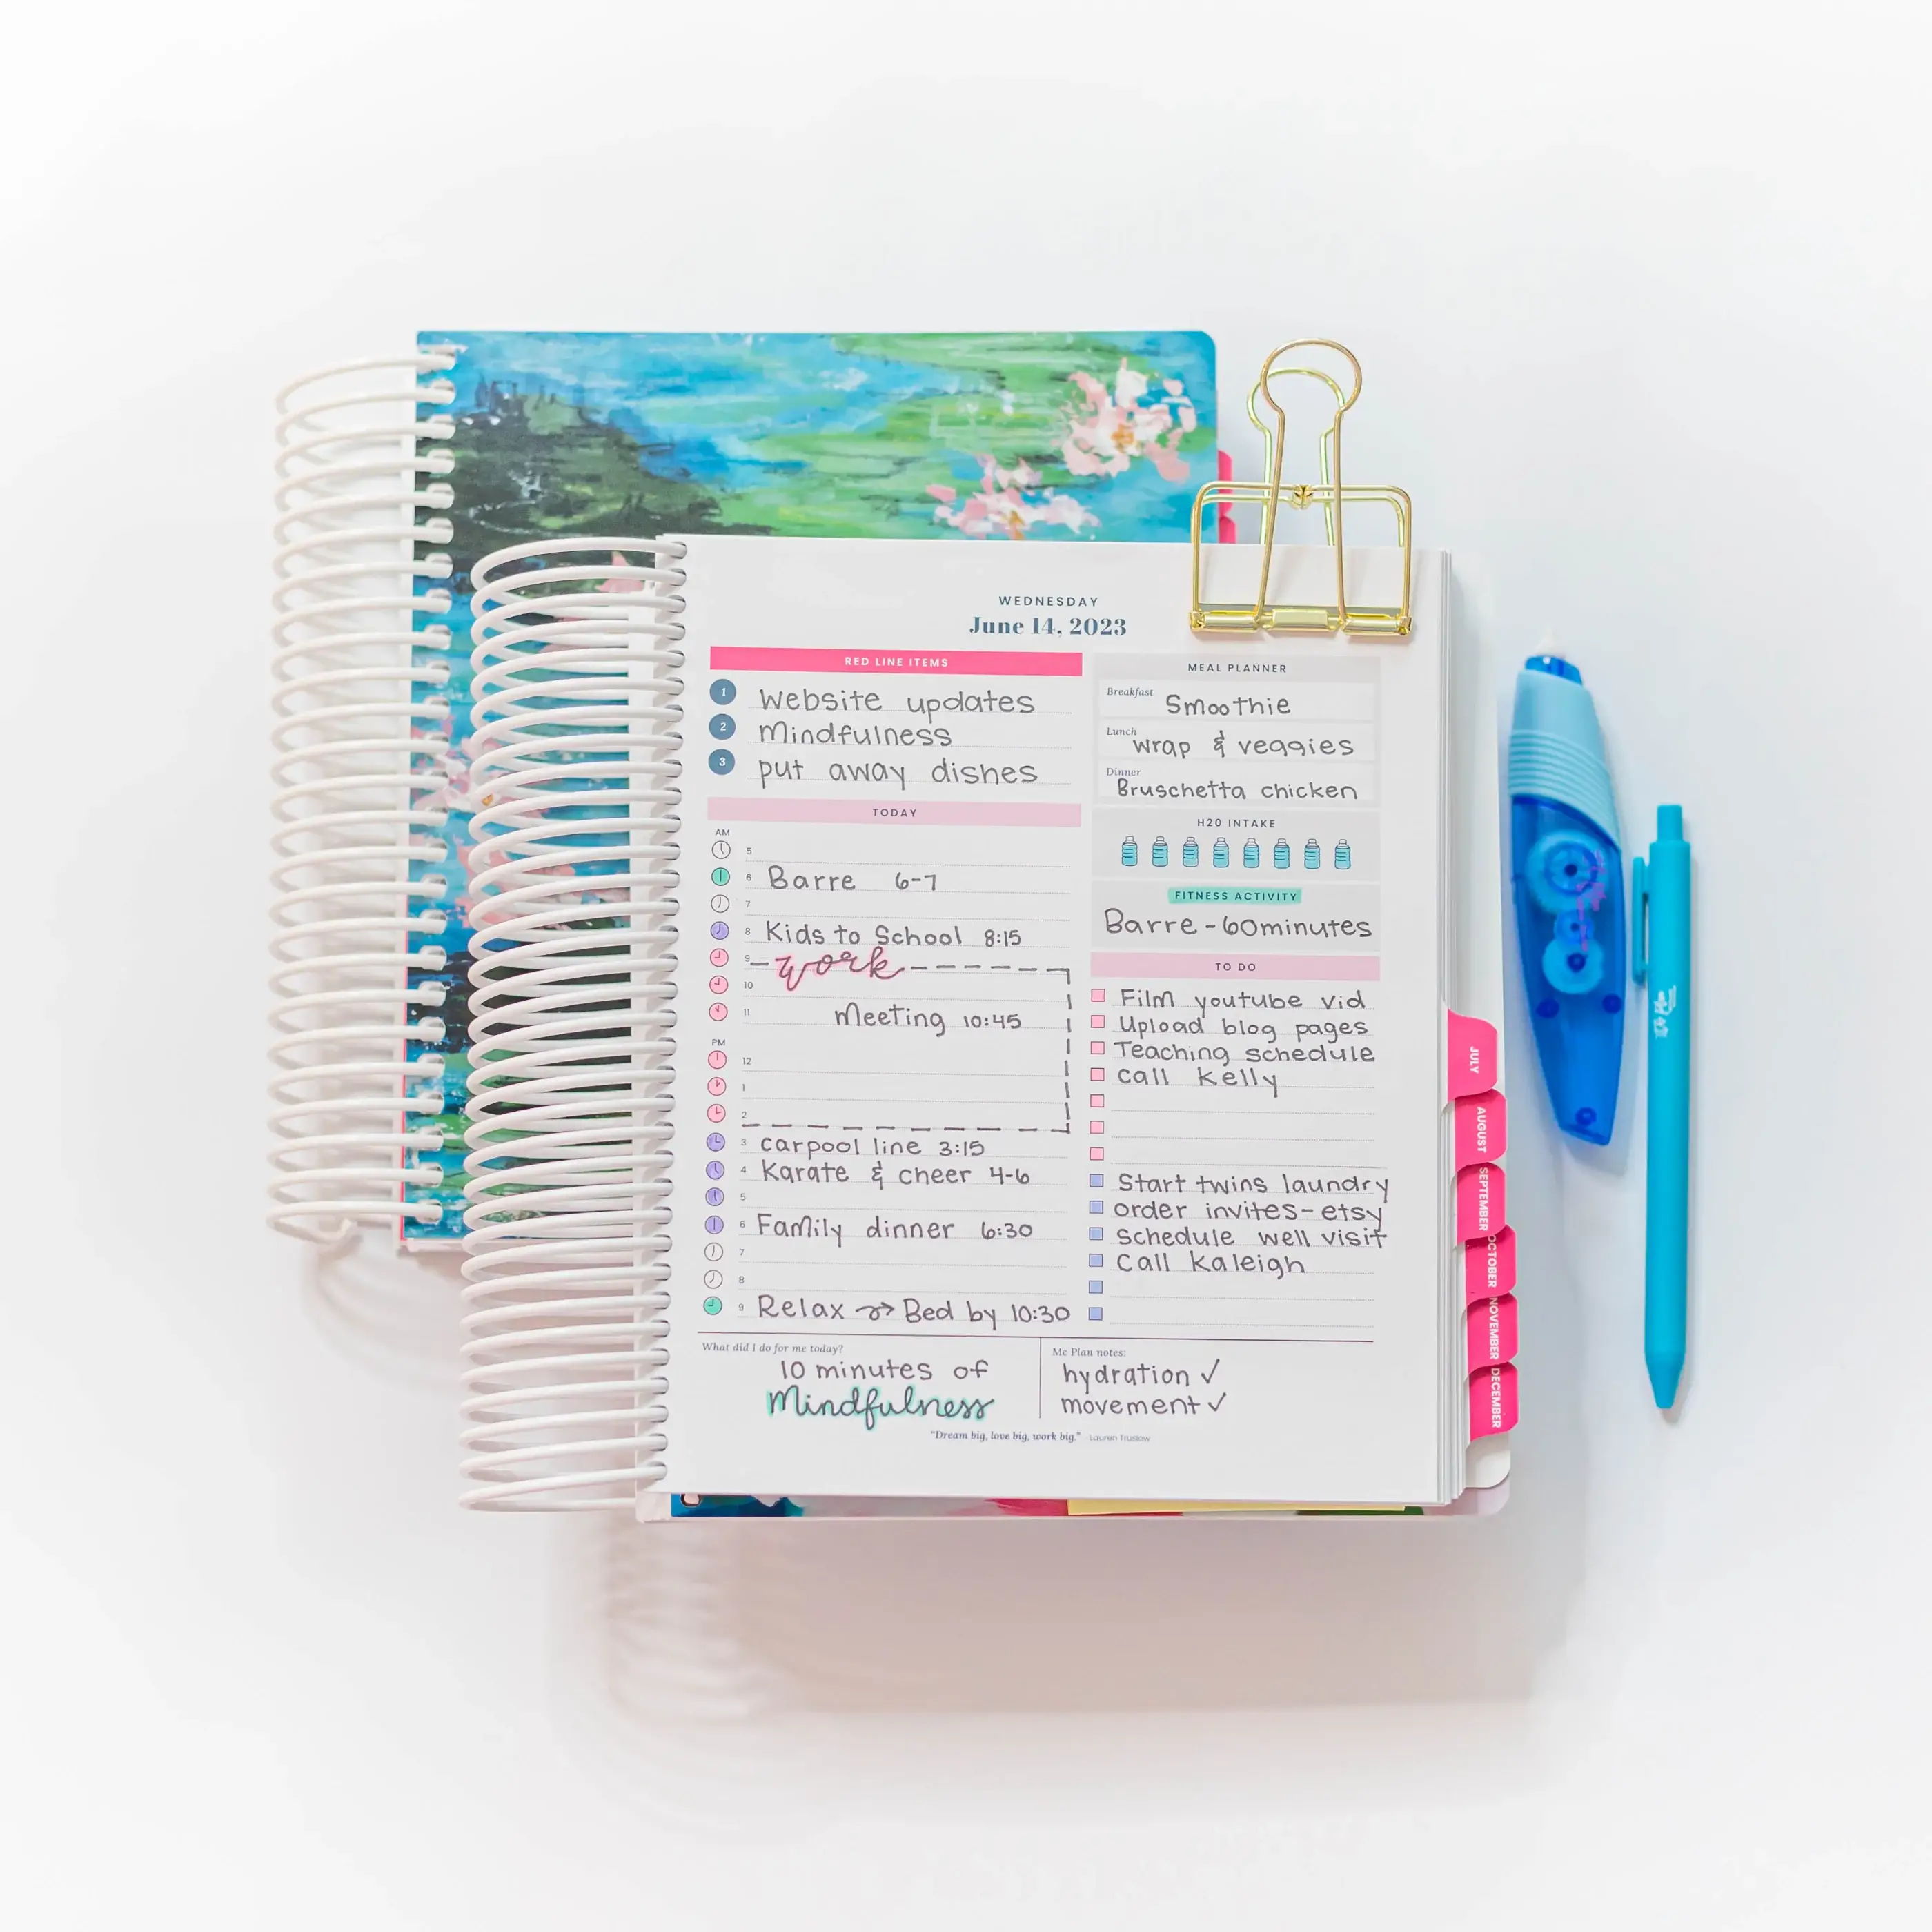 WEDNESDAY
June 14, 2023
RED LINE ITEMS
1 website updates
2 Mindfulness
3 put away dishes
TODAY
AM
5
6 Barre 6-7
7
8 Kids to School 8:15
9 work
10
11 Meeting 10:45
PM
12
1
2
3 carpool line 3:15
4 Karate & cheer 4-6
5
6 Family dinner 6:30
7
8
9 Relax → Bed by 10:30
MEAL PLANNER
Breakfast Smoothie
Lunch wrap & veggies
Dinner Bruschetta chicken
H20 INTAKE
FITNESS ACTIVITY
Barre - 60 minutes
TO DO
Film youtube vid
Upload blog pages
Teaching schedule
call Kelly
Start twins laundry
order invites - etsy
Schedule well visit
Call Kaleigh
What did I do for me today?
10 minutes of
Mindfulness
Me Plan notes:
hydration ✓
movement ✓
"Dream big, love big, work big." - Lauren Truslow
JULY
AUGUST
SEPTEMBER
OCTOBER
NOVEMBER
DECEMBER